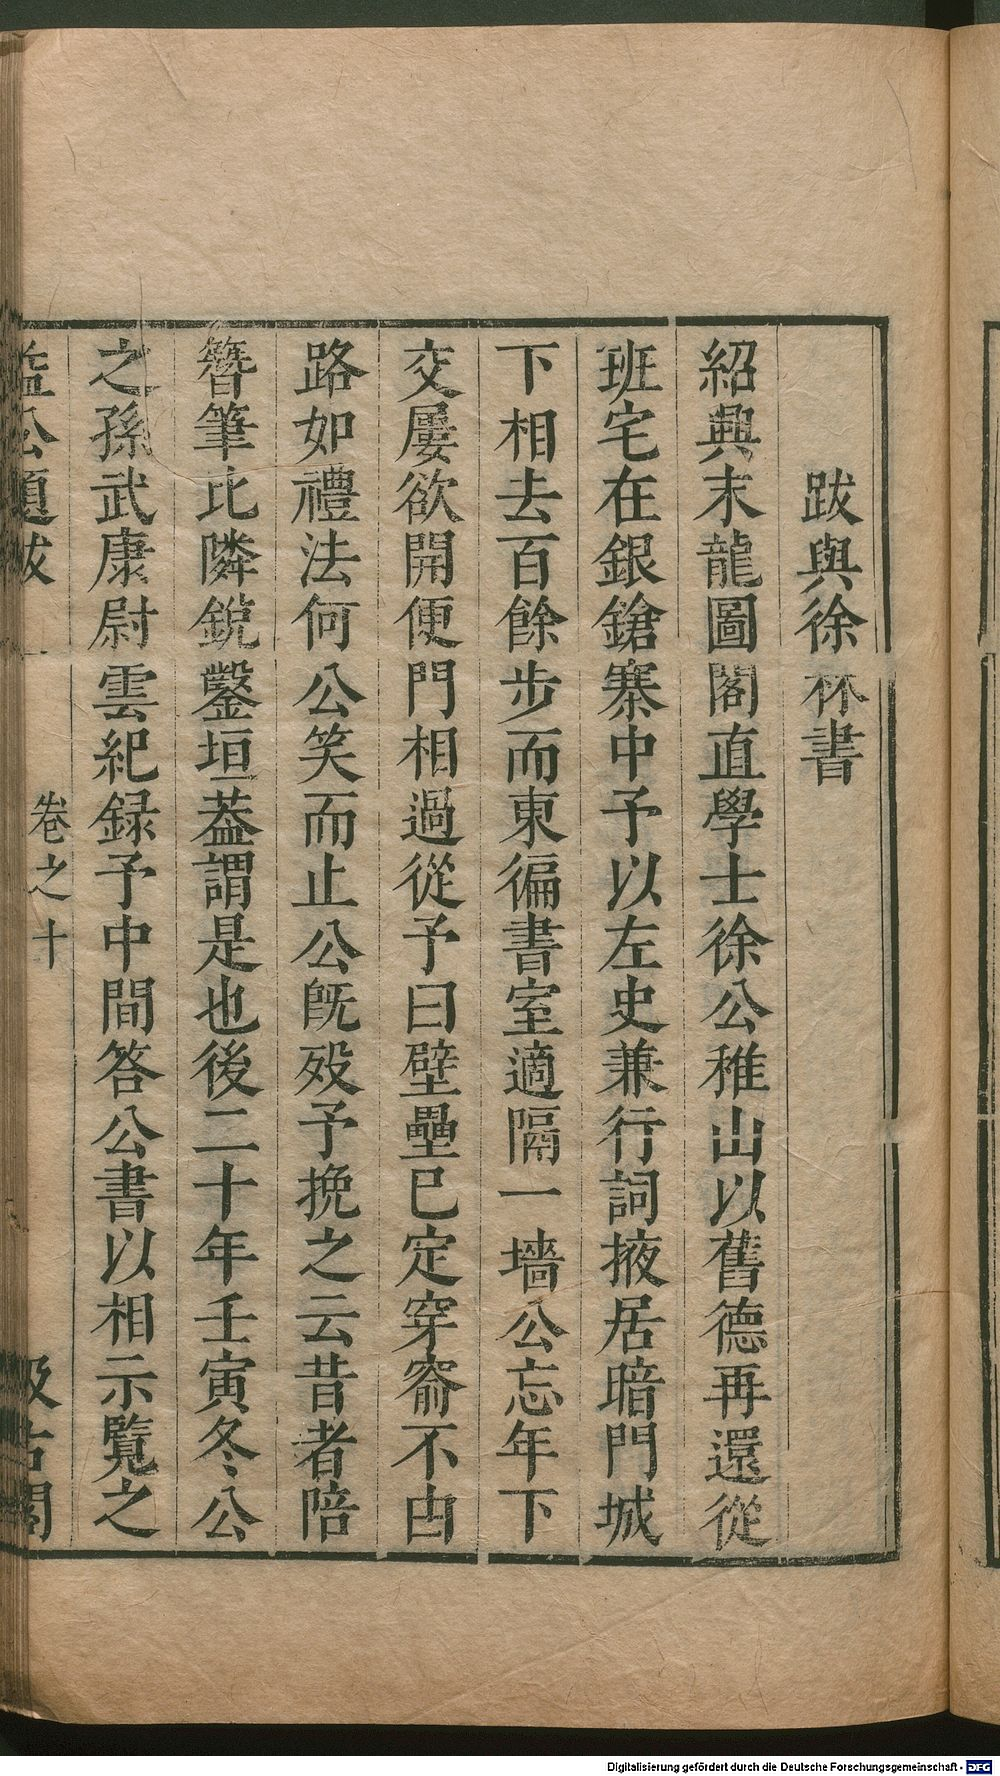 跋與徐林書
紹興末龍圖閣直學士徐公稚山以舊德再還從
班宅在銀鎗寨中予以左史兼行詞掖居暗門城
下相去百餘步而東徧書室適隔一墻公忘年下
交屢欲開便門相過從予曰壁壘已定穿窬不由
路如禮法何公笑而止公旣歿予挽之云昔者陪
簪筆比隣銳鑿垣葢謂是也後二十年壬寅冬公
之孫武康尉雲紀録予中間答公書以相示覽之
益公題跋
卷之十
汲古閣
Digitalisierung gefördert durch die Deutsche Forschungsgemeinschaft - DFG